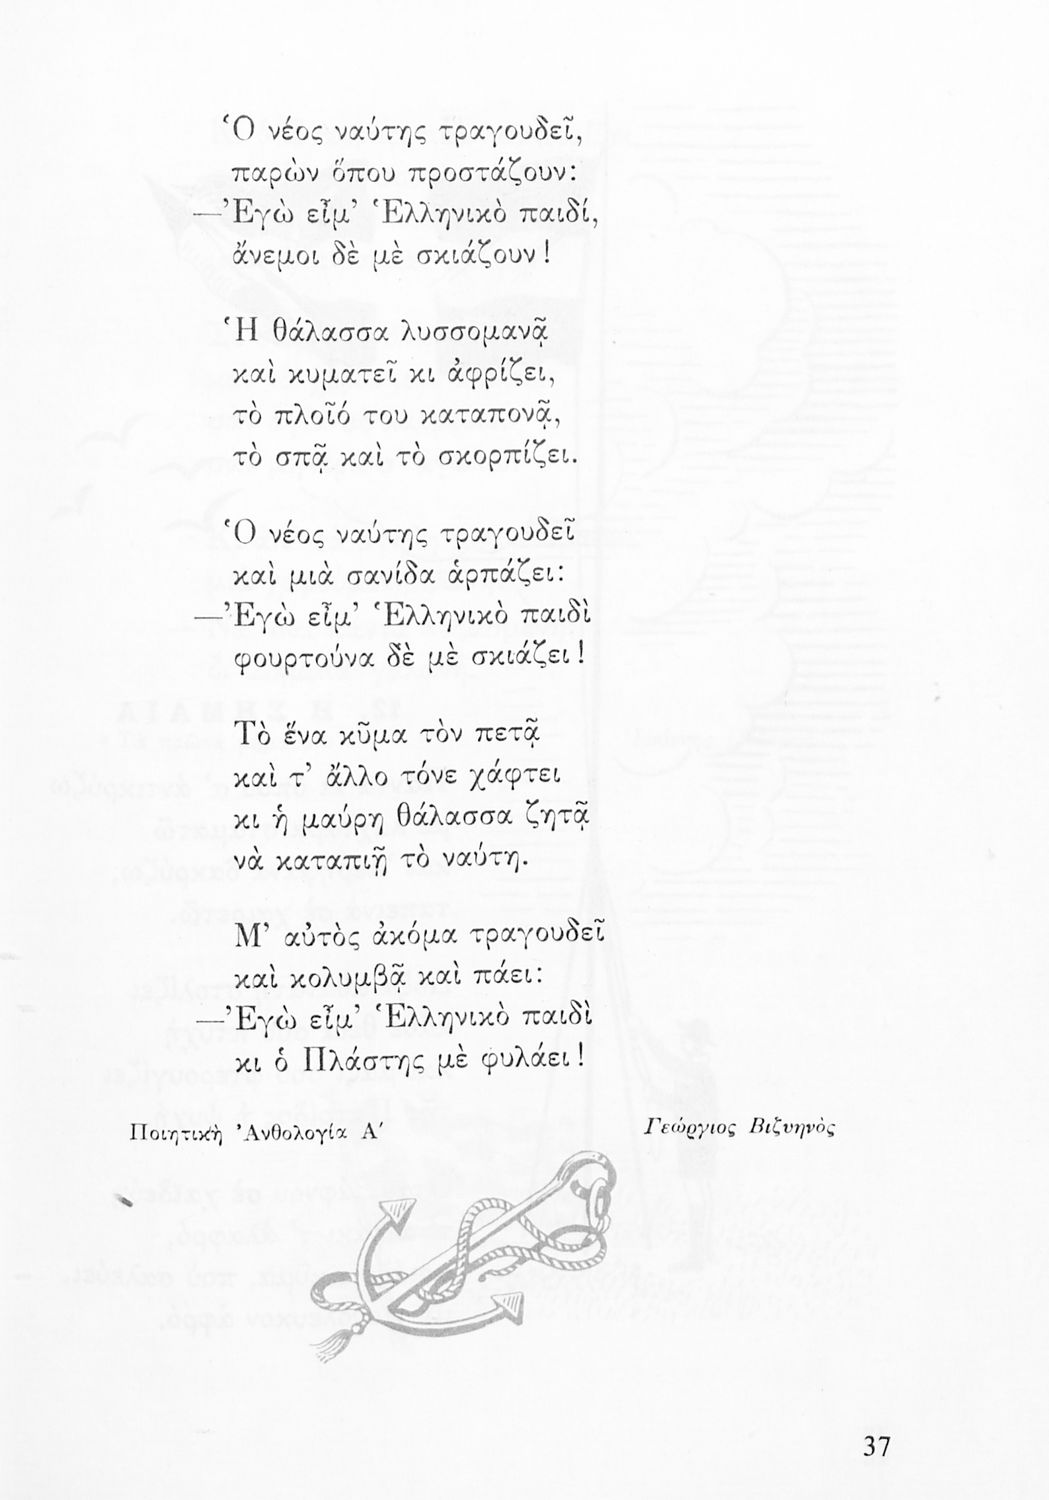 Ὁ νέος ναύτης τραγουδεῖ,
παρὼν ὅπου προστάζουν:
—Ἐγὼ εἶμ’ Ἑλληνικὸ παιδί,
ἄνεμοι δὲ μὲ σκιάζουν!
Ἡ θάλασσα λυσσομανᾷ
καὶ κυματεῖ κι ἀφρίζει,
τὸ πλοῖό του καταπονᾷ,
τὸ σπᾷ καὶ τὸ σκορπίζει.
Ὁ νέος ναύτης τραγουδεῖ
καὶ μιὰ σανίδα ἁρπάζει:
—Ἐγὼ εἶμ’ Ἑλληνικὸ παιδὶ
φουρτούνα δὲ μὲ σκιάζει!
Τὸ ἕνα κῦμα τὸν πετᾷ
καὶ τ’ ἄλλο τόνε χάφτει
κι ἡ μαύρη θάλασσα ζητᾷ
νὰ καταπιῇ τὸ ναύτη.
Μ’ αὐτὸς ἀκόμα τραγουδεῖ
καὶ κολυμβᾷ καὶ πάει:
—Ἐγὼ εἶμ’ Ἑλληνικὸ παιδὶ
κι ὁ Πλάστης μὲ φυλάει!
Ποιητικὴ Ἀνθολογία Α΄
Γεώργιος Βιζυηνὸς
37